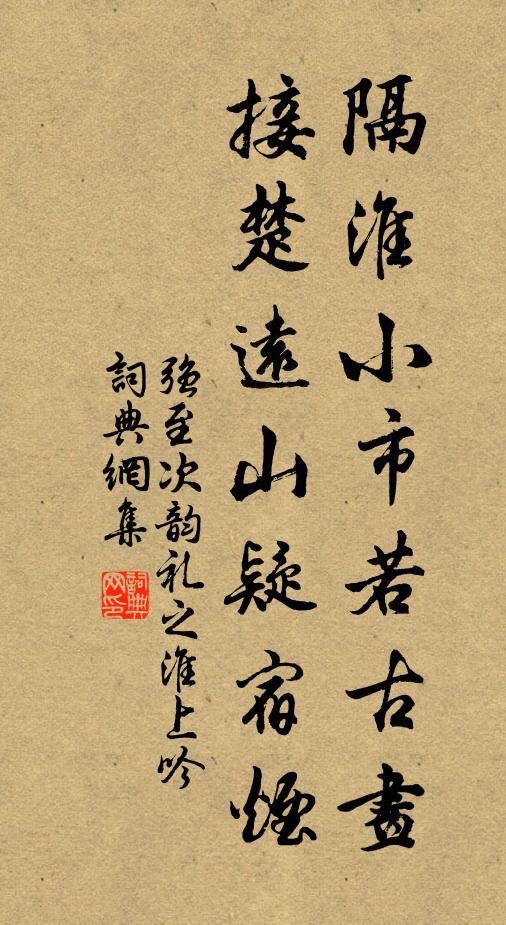 隔淮小市若古畫
接楚遠山疑宿煙
強至次韵礼之淮上吟
詞典網集
詞典網印